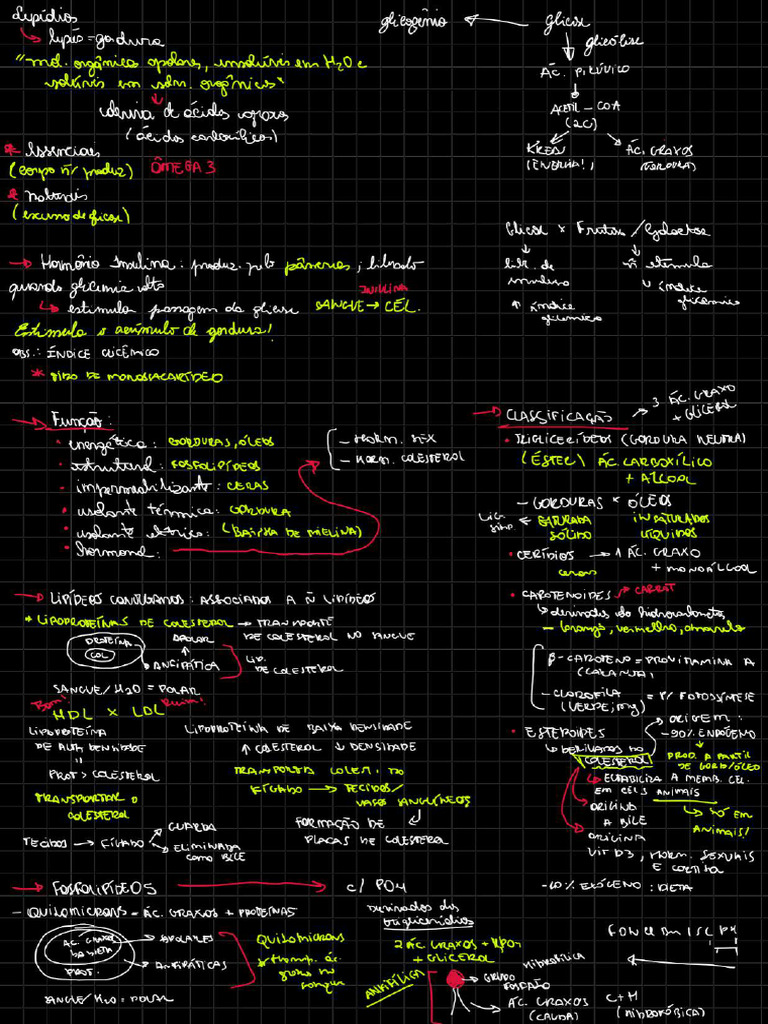 Lipídios
lipis = gordura
"mol. orgânica apolares, insolúveis em H2O e
solúveis em solv. orgânicos"
deriva de ácidos graxos
(ácidos carboxílicos)
* Essenciais
(corpo ñ produz) ÔMEGA 3
* Naturais
(excesso de glicose)
glicogênio ← glicose
glicólise
ÁC. PIRÚVICO
ACETIL-COA
(2C)
KREBS
(ENERGIA!)
ÁC. GRAXOS
(GORDURA)
→ Hormônio Insulina: produz. pelo pâncreas; liberado
quando glicemia alta
INSULINA
↳ estimula passagem da glicose SANGUE → CÉL.
Estimula o acúmulo de gordura!
OBS.: ÍNDICE GLICÊMICO
* TIPO DE MONOSSACARÍDEO
Glicose × Frutose / Galactose
lib. de
insulina
↑ índice
glicêmico
ñ estimula
↓ índice
glicêmico
→ Função:
• energética: GORDURAS, ÓLEOS
• estrutural: FOSFOLIPÍDEOS
• impermeabilizante: CERAS
• isolante térmico: GORDURA
• isolante elétrico: (BAINHA DE MIELINA)
• hormonal:
- HORM. SEX
- HORM. COLESTEROL
→ CLASSIFICAÇÃO → 3 ÁC. GRAXO
+ GLICEROL
• TRIGLICERÍDEOS (GORDURA NEUTRA)
(ÉSTER) ÁC. CARBOXÍLICO
+ ÁLCOOL
- GORDURAS × ÓLEOS
SATURADA
SÓLIDO
INSATURADOS
LÍQUIDOS
• CERÍDIOS → 1 ÁC. GRAXO
ceras + MONOÁLCOOL
• CAROTENOIDES → CARROT
↳ derivados de hidrocarbonetos
- laranja, vermelho, amarelo
β-CAROTENO = PROVITAMINA A
(LARANJA)
- CLOROFILA = P/ FOTOSSÍNTESE
(VERDE; Mg)
• ESTEROIDES
↳ DERIVADOS DO
COLESTEROL
ORIGEM:
- 90% ENDÓGENO
PROD. A PARTIR
DE GORD/ÓLEO
↳ ESTABILIZA A MEMB. CEL.
EM CÉLS ANIMAIS
↳ SÓ EM
ANIMAIS!
ORIGINA
A BILE
ORIGINA
VIT D3, HORM. SEXUAIS
E CORTISOL
- 10% EXÓGENO: DIETA
→ LIPÍDEOS CONJUGADOS: ASSOCIADOS A Ñ LIPÍDEOS
* LIPOPROTEÍNAS DE COLESTEROL → TRANSPORTE
DE COLESTEROL NO SANGUE
PROTEÍNA
COL
APOLAR
ANFIPÁTICA
LIP.
DE COLESTEROL
SANGUE/H2O = POLAR
Bom! Ruim!
HDL × LDL
LIPOPROTEÍNA
DE ALTA DENSIDADE
PROT > COLESTEROL
TRANSPORTAR O
COLESTEROL
TECIDOS → FÍGADO
GUARDA
ELIMINADA
COMO BILE
LIPOPROTEÍNA DE BAIXA DENSIDADE
↑ COLESTEROL ↓ DENSIDADE
TRANSPORTA COLEST. DO
FÍGADO → TECIDOS/
VASOS SANGUÍNEOS
FORMAÇÃO DE
PLACAS DE COLESTEROL
→ FOSFOLIPÍDEOS → c/ PO4
- QUILOMICRONS = ÁC. GRAXOS + PROTEÍNAS
ÁC. GRAXOS
DA DIETA
PROT.
APOLARES
ANFIPÁTICAS
QUILOMICRONS
* transp. ác.
graxo no
sangue
SANGUE/H2O = POLAR
Derivados dos
triglicerídios
2 ÁC. GRAXOS + HPO4
+ GLICEROL
ANFIFÍLICA
hidrofílica
GRUPO
FOSFATO
ÁC. GRAXOS
(CAUDA)
C+H
(HIDROFÓBICA)